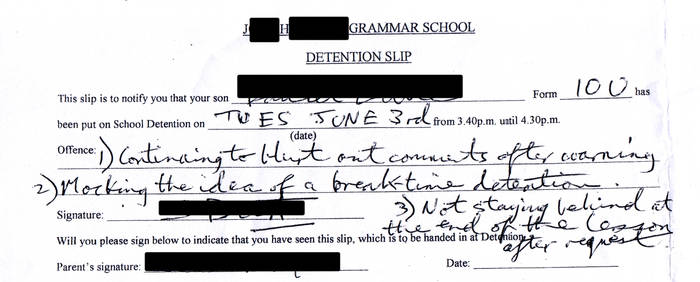 J H GRAMMAR SCHOOL
DETENTION SLIP
This slip is to notify you that your son Form 10U has
been put on School Detention on TUES JUNE 3rd from 3.40p.m. until 4.30p.m.
(date)
Offence: 1) Continuing to blurt out comments after warning
2) Mocking the idea of a break-time detention.
Signature: 3) Not staying behind at
the end of the lesson
Will you please sign below to indicate that you have seen this slip, which is to be handed in at Detention.
after request.
Parent's signature: Date: